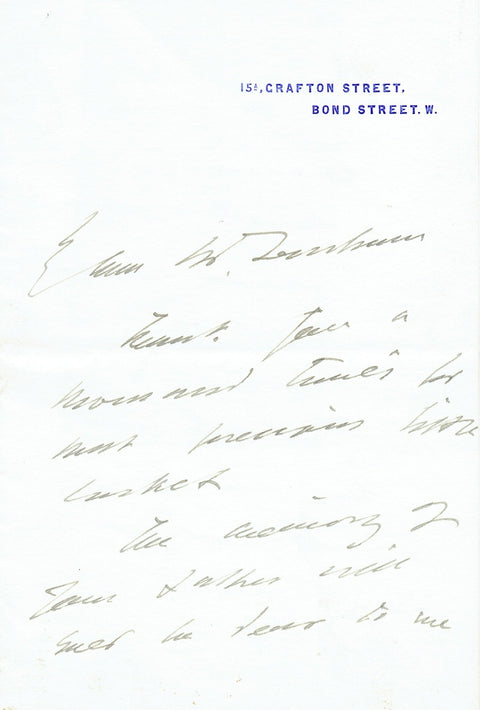 15A, GRAFTON STREET,
BOND STREET. W.
Dear Mr.
Thank you a
thousand times for
most precious little
casket
The memory of
your father will
ever be dear to me